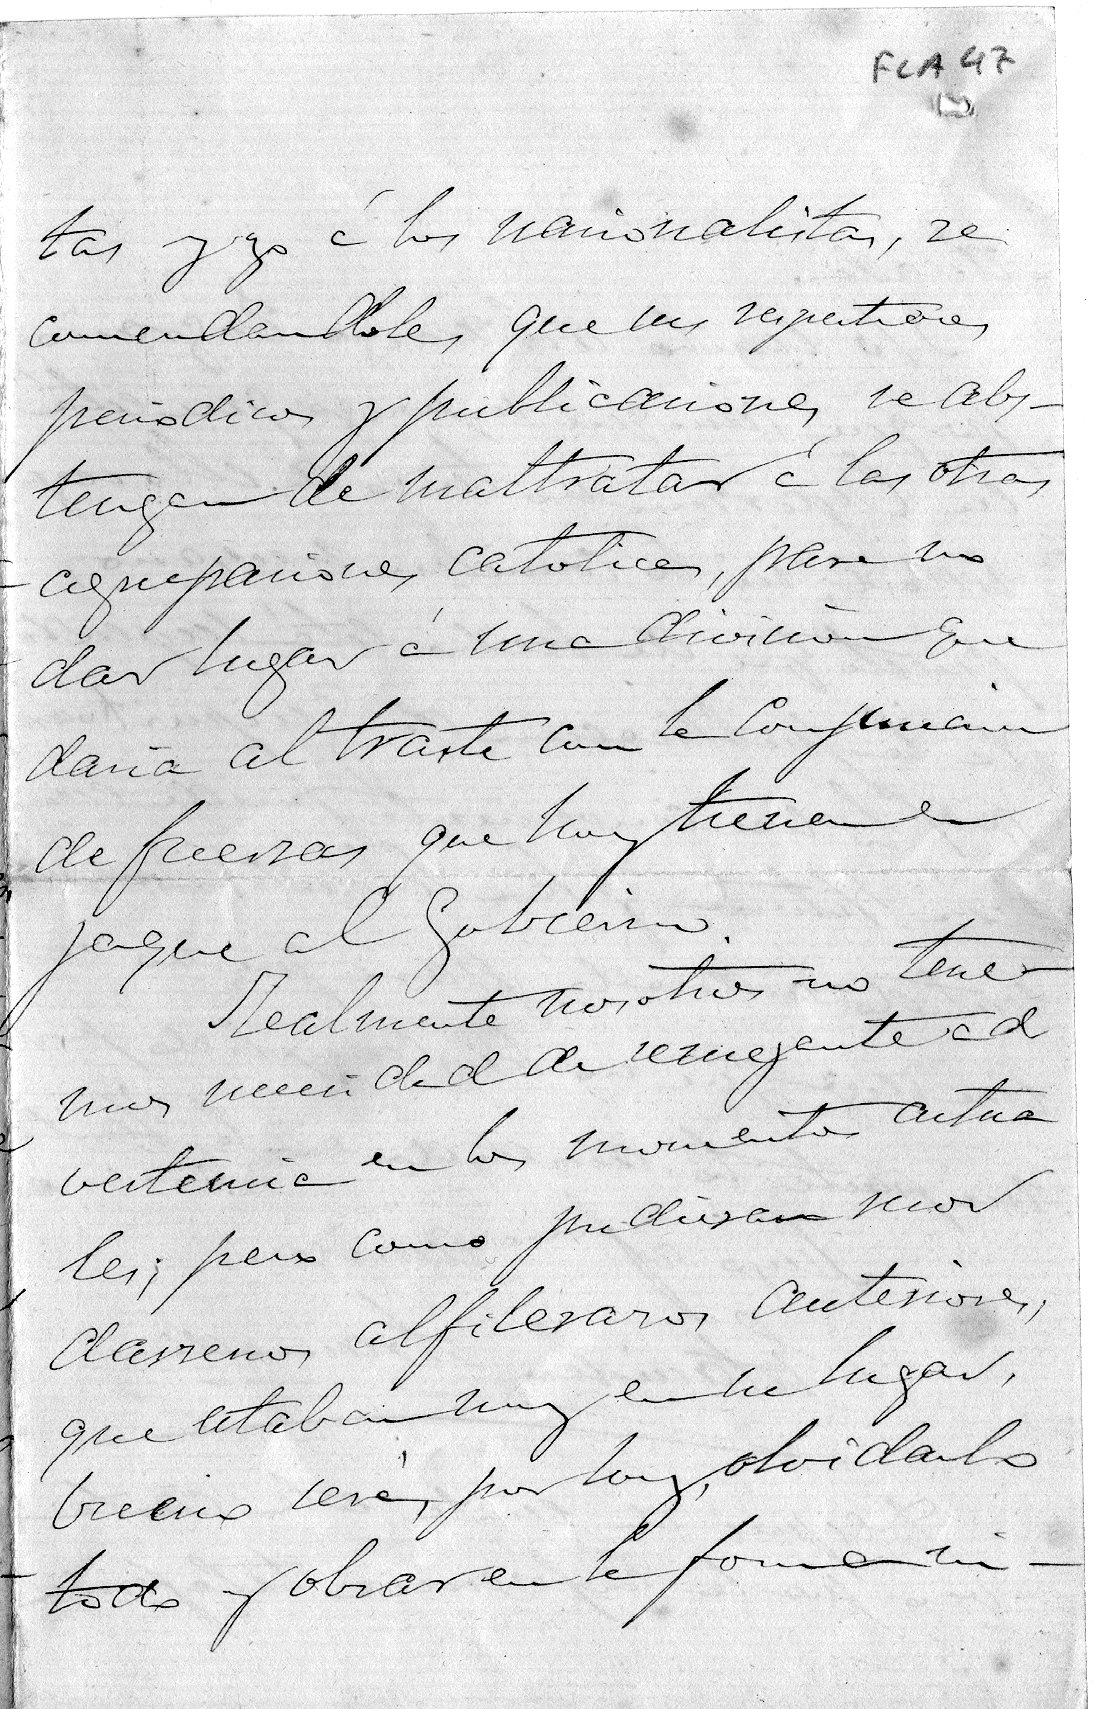 FLA 47
tas y yo á los nacionalistas, re
comendandoles que sus respectivos
periodicos y publicaciones se abs-
tengan de maltratar á las otras
agrupaciones catolicas, para no
dar lugar á una division que
daria al traste con la conjuncion
de fuerzas que hoy tienen en
jaque al Gobierno.
Realmente nosotros no tene-
mos necesidad de semejante ad
vertencia en los momentos actua
les; pero como pudieran recor
darsenos alfilerazos anteriores,
que estaban muy en su lugar,
bueno será, por hoy, olvidarlo
todo y obrar en la forma in-